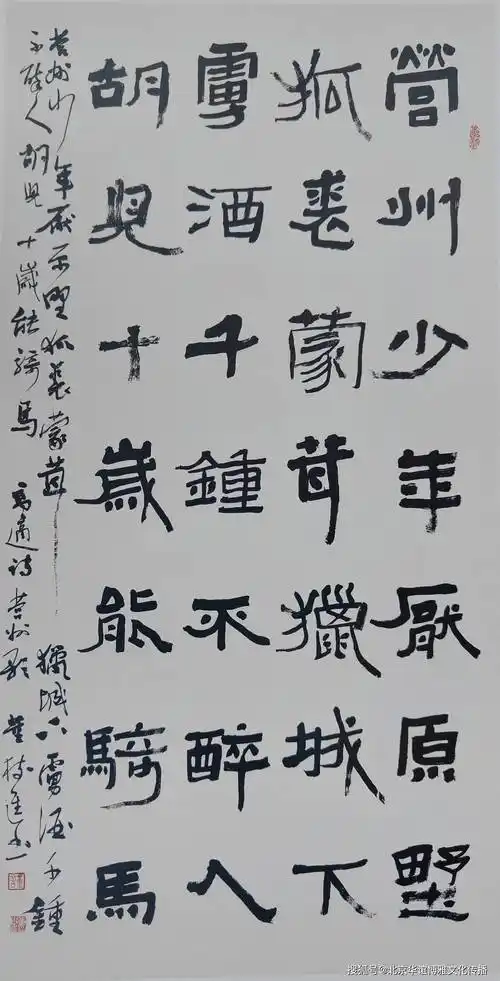 營州少年厭原墅
狐裘蒙茸獵城下
虜酒千鍾不醉人
胡兒十歲能騎馬
營州少年厭原野狐裘蒙茸獵城下虜酒千鍾
不醉人胡兒十歲能騎馬 高適詩營州歌
搜狐号@北京华谊博雅文化传播